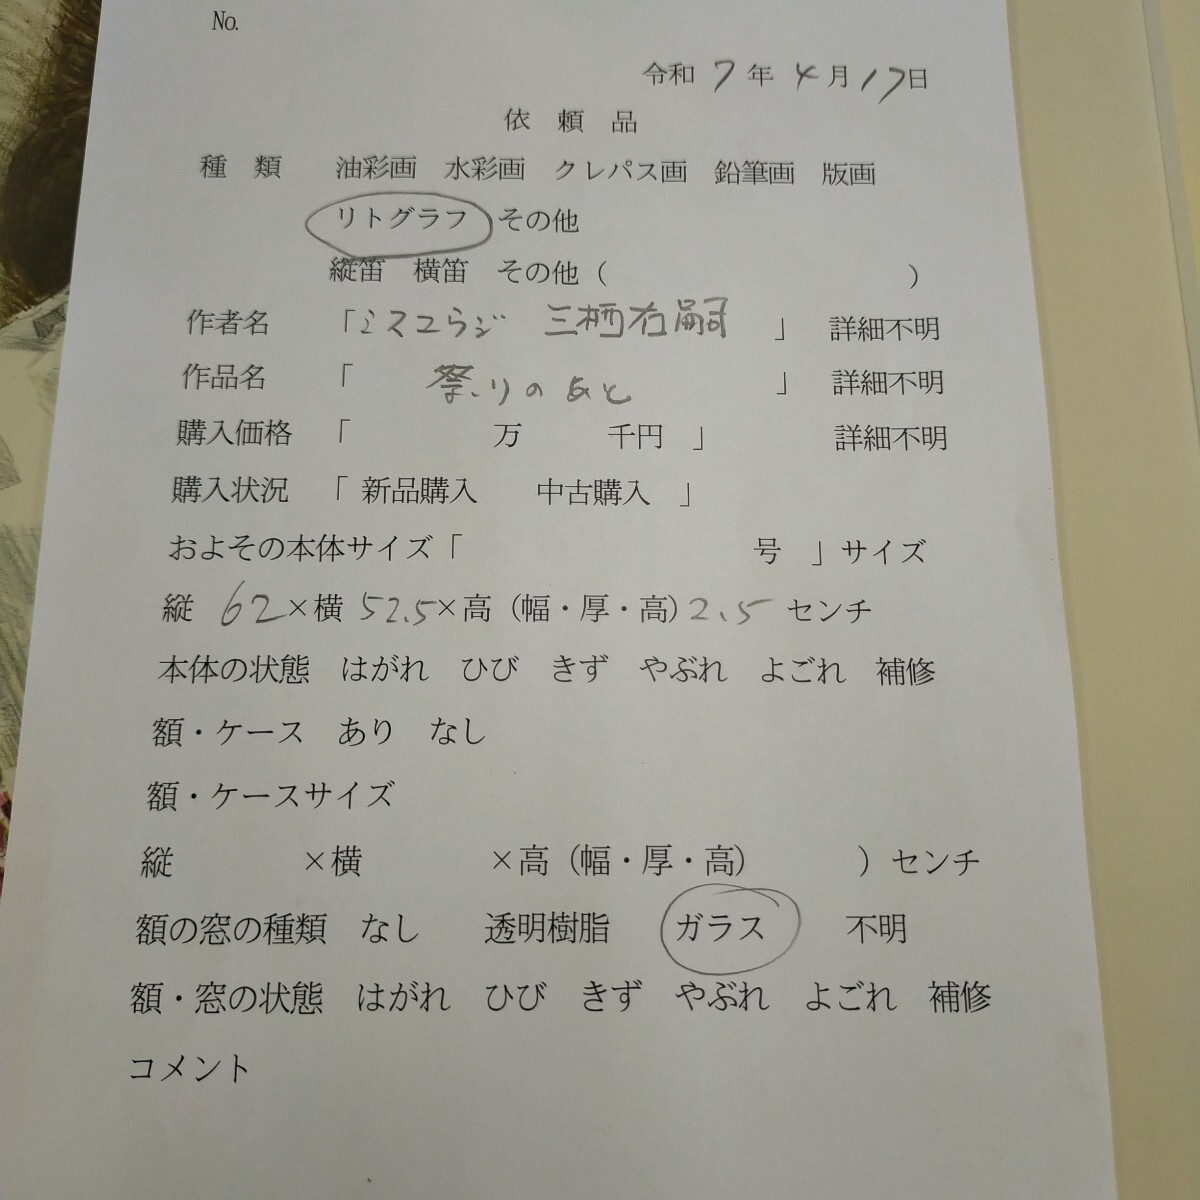 No.
令和 7 年 4 月 17 日
依 頼 品
種 類 油彩画 水彩画 クレパス画 鉛筆画 版画
リトグラフ その他
縦笛 横笛 その他（ ）
作者名 「ミスコウジ 三栖右嗣 」 詳細不明
作品名 「 祭りのあと 」 詳細不明
購入価格 「 万 千円 」 詳細不明
購入状況 「 新品購入 中古購入 」
およその本体サイズ「 号 」サイズ
縦 62 ×横 52.5 ×高（幅・厚・高）2.5 センチ
本体の状態 はがれ ひび きず やぶれ よごれ 補修
額・ケース あり なし
額・ケースサイズ
縦 ×横 ×高（幅・厚・高） ）センチ
額の窓の種類 なし 透明樹脂 ガラス 不明
額・窓の状態 はがれ ひび きず やぶれ よごれ 補修
コメント